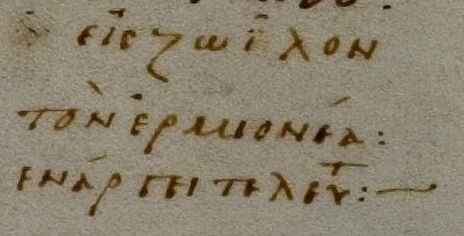 εἰς ζωΐλον
τὸν ἑρμιονέα:
ἐν ἄργει τελευτ: